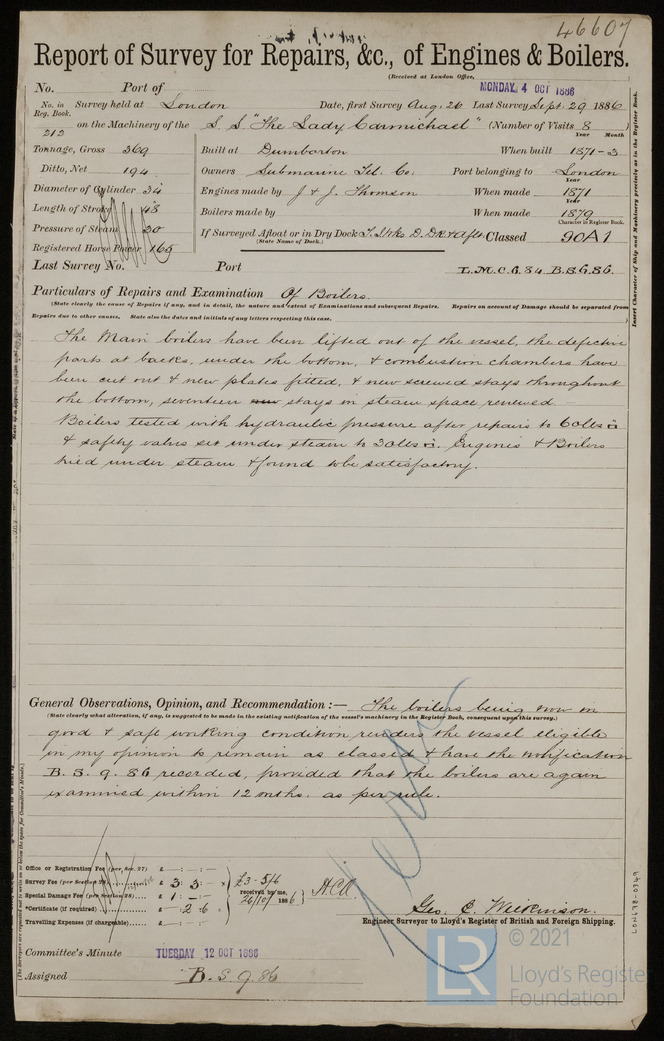 46607
Report of Survey for Repairs, &c., of Engines & Boilers.
(Received at London Office, MONDAY, 4 OCT 1886
No. Port of
No. in Reg. Book. Survey held at London Date, first Survey Aug. 26 Last Survey Sept. 29 1886
212 on the Machinery of the S.S "The Lady Carmichael" (Number of Visits 8
Year Month
Tonnage, Gross 369 Built at Dumbarton When built 1871-3
Ditto, Net 194 Owners Submarine Tel. Co. Port belonging to London
Diameter of Cylinder 34 Engines made by J & J. Thomson When made 1871
Length of Stroke Boilers made by When made 1879
Pressure of Steam 30 If Surveyed Afloat or in Dry Dock & Aflt. Classed 90A1
(State Name of Dock.) Character in Register Book.
Registered Horse Power 165
Last Survey No. Port L.M.C.6.84. B.S.6.86.
Particulars of Repairs and Examination Of Boilers.
(State clearly the cause of Repairs if any, and in detail, the nature and extent of Examinations and subsequent Repairs. Repairs on account of Damage should be separated from
Repairs due to other causes. State also the dates and initials of any letters respecting this case.)
The Main boilers have been lifted out of the vessel, the defective
parts at backs, under the bottom, & combustion chambers have
been cut out & new plates fitted, & new screwed stays throughout
the bottom, seventeen stays in steam space renewed.
Boilers tested with hydraulic pressure after repairs to 60lbs □
& safety valves set under steam to 30lbs □. Engines & Boilers
tried under steam & found to be satisfactory.
General Observations, Opinion, and Recommendation :— The boilers being now in
(State clearly what alteration, if any, is suggested to be made in the existing notification of the vessel's machinery in the Register Book, consequent upon this survey.)
good & safe working condition renders the vessel eligible
in my opinion to remain as classed & have the notification
B.S. 9. 86 recorded, provided that the boilers are again
examined within 12 mths. as per rule.
Office or Registration Fee (per Sec. 27) £ : :
Survey Fee (per Section 28) £ 3 : 3 :
Special Damage Fee (per Section 28) £ : :
*Certificate (if required) £ : 2 : 6
Travelling Expenses (if chargeable) £ : :
£3-5/6
received by me,
26/10/ 1886
Geo. C. Wilkinson.
Engineer Surveyor to Lloyd's Register of British and Foreign Shipping.
Committee's Minute TUESDAY 12 OCT 1886
Assigned B.S. 9.86
Insert Character of Ship and Machinery precisely as in the Register Book.
LON698-0349
LR
© 2021
Lloyd's Register
Foundation